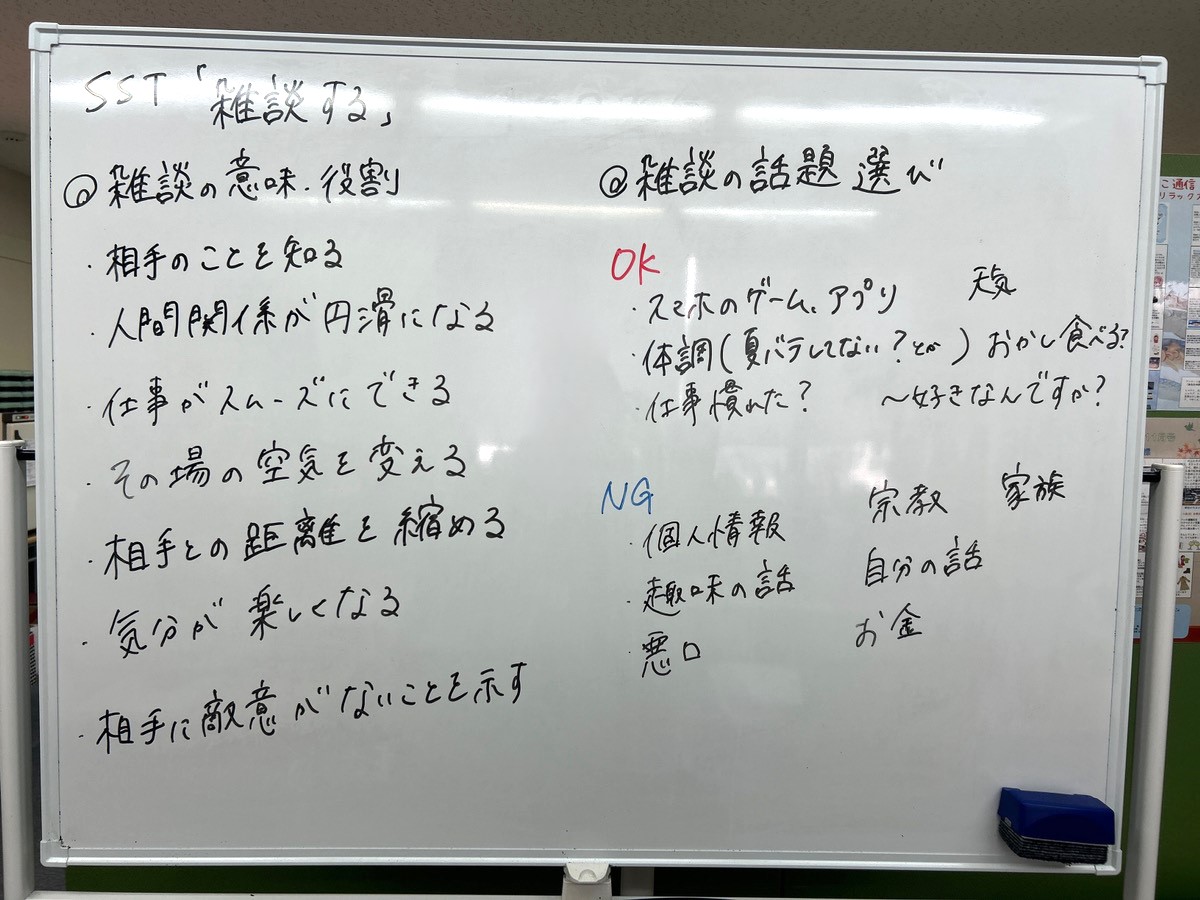 SST「雑談する」
@雑談の意味・役割
・相手のことを知る
・人間関係が円滑になる
・仕事がスムーズにできる
・その場の空気を変える
・相手との距離を縮める
・気分が楽しくなる
・相手に敵意がないことを示す
@雑談の話題選び
OK
・スマホのゲーム、アプリ 天気
・体調(夏バテしてない?とか) おかし食べる?
・仕事慣れた? ～好きなんですか?
NG
・個人情報 宗教 家族
・趣味の話 自分の話
・悪口 お金
通信
リラックス